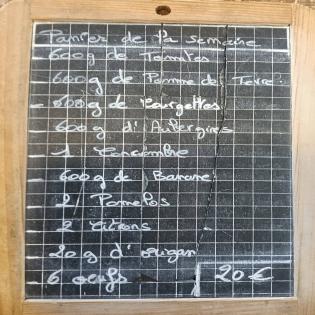 Panier de la semaine
- 600g de Tomates
- 600g de Pomme de Terre
- 600g de Courgettes
- 600g d'Aubergines
- 1 Concombre
- 600g de Banane
- 2 Pomelos
- 2 Citrons
- 20g d'origan
- 6 oeufs 20€